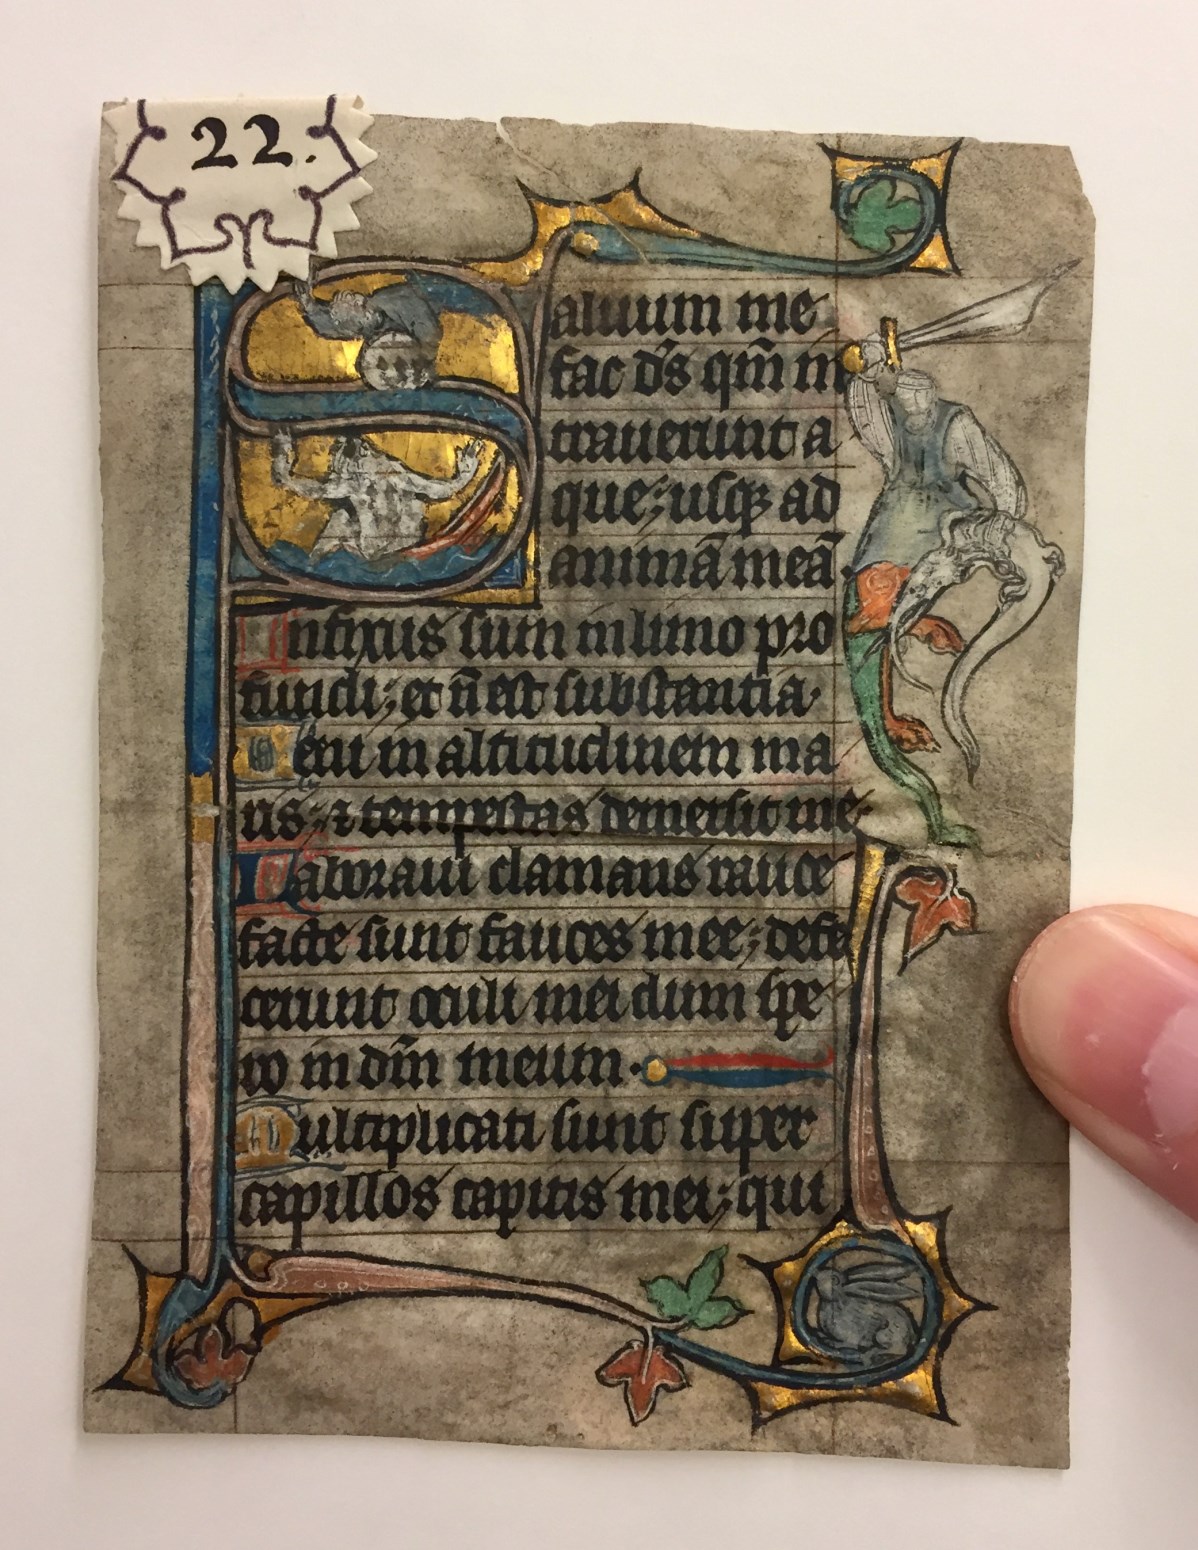 22.
Saluum me
fac d̄s qm̄ in
trauerunt a
que; usqꝫ ad
animā meā
Infixus sum in limo pro
fundi; et ñ est substantia.
Ueni in altitudinem ma
ris; ⁊ tempestas demersit me.
Laboraui clamans rauce
facte sunt fauces mee; defe
cerunt oculi mei dum spe
ro in dm̄ meum.
Multiplicati sunt super
capillos capitis mei; qui